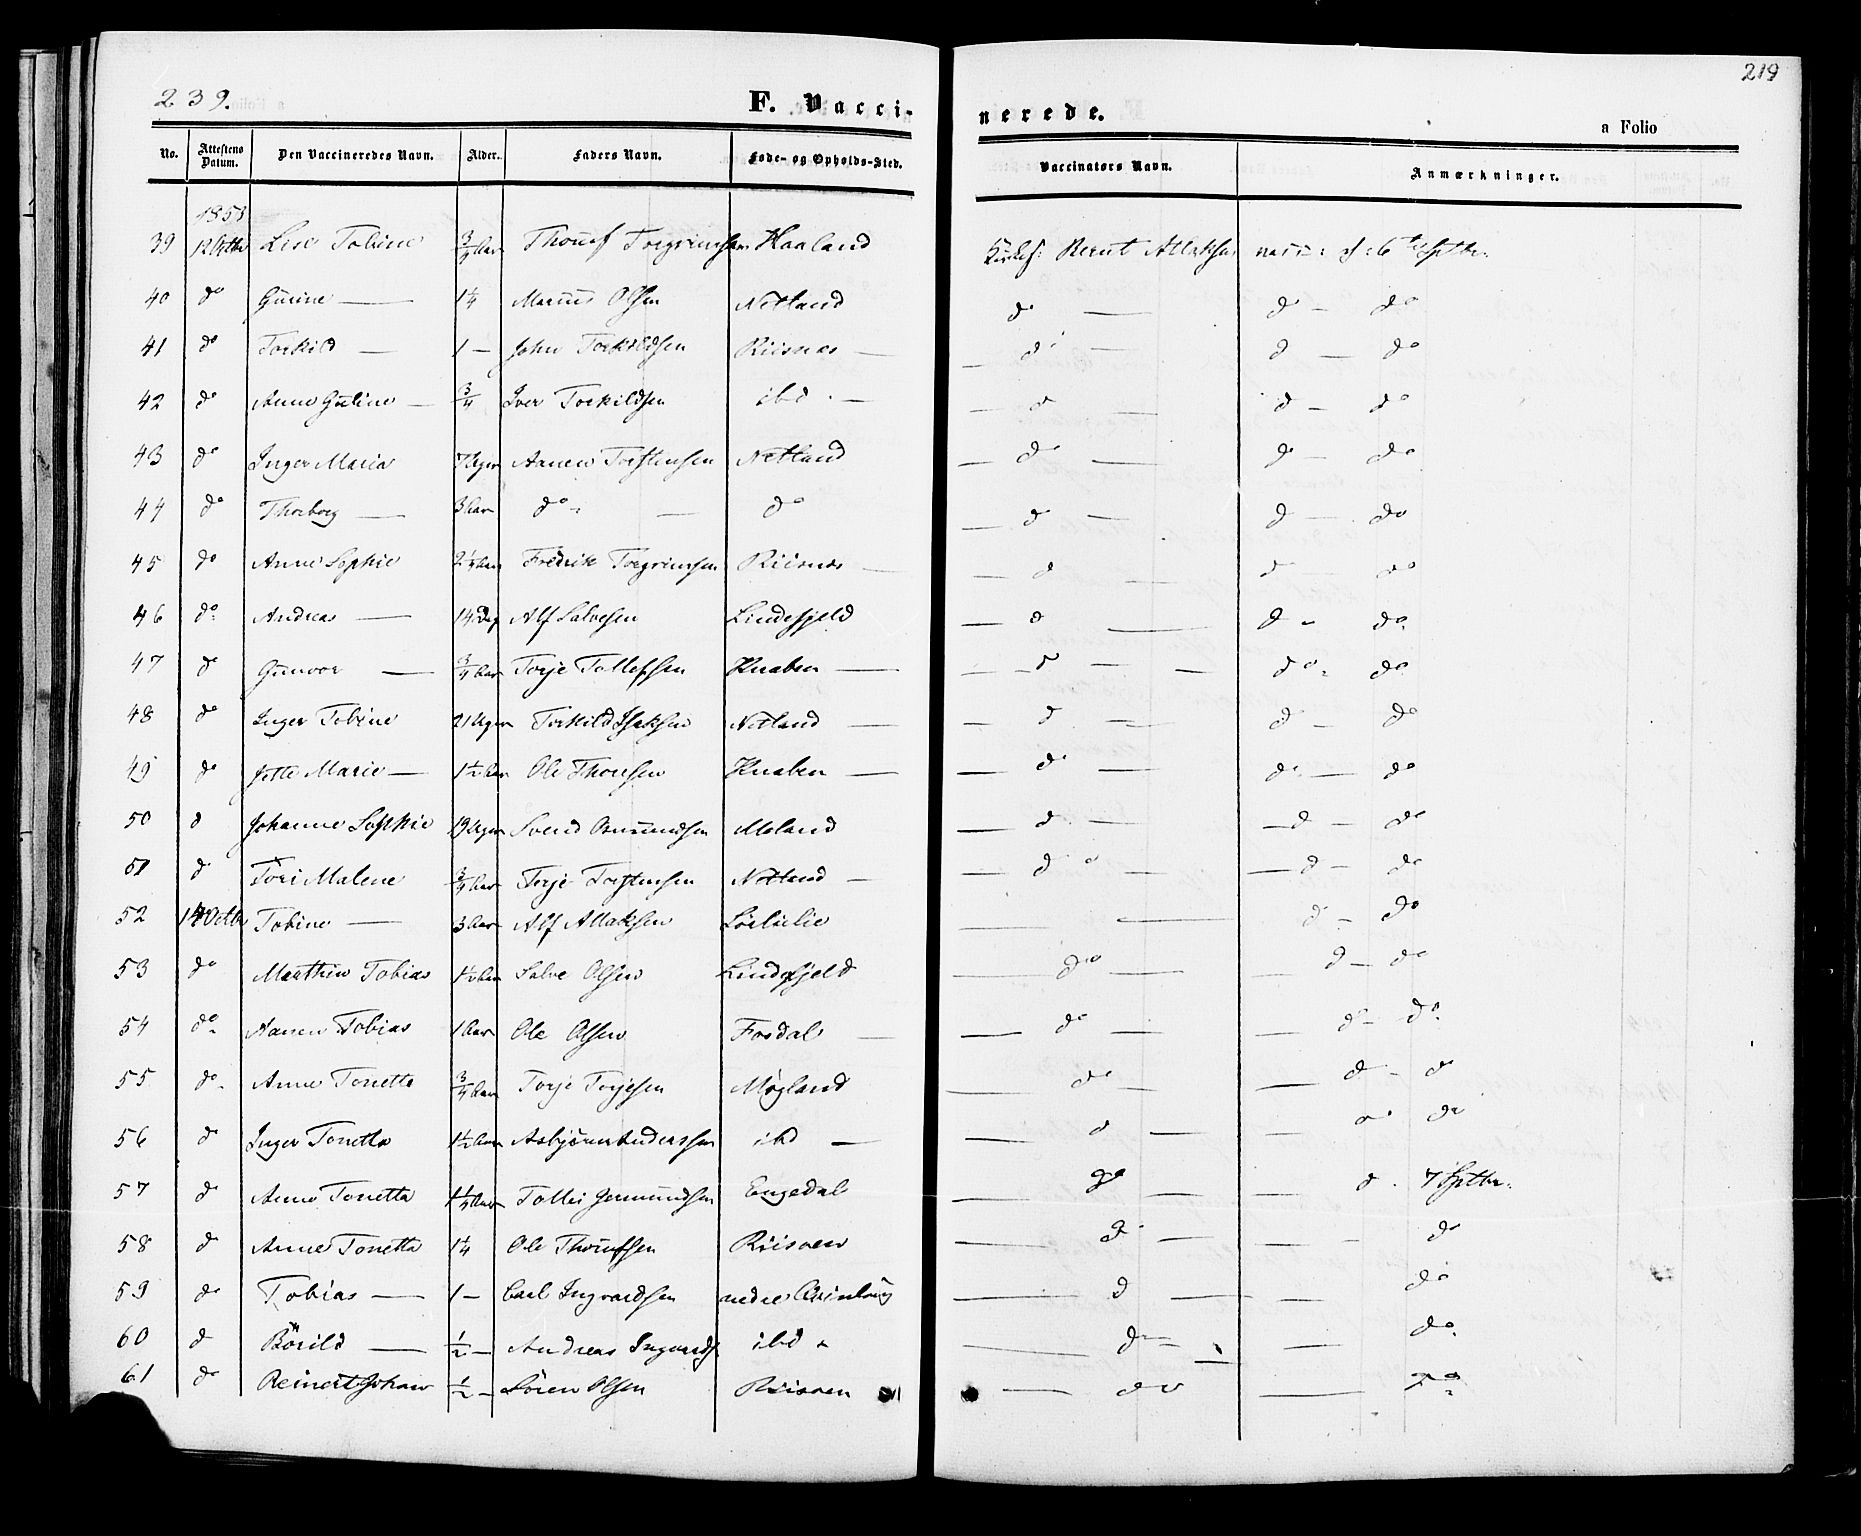 239.
F. Vacci-
nerede.
219
a Folio
No. Attestens Datum. Den Vaccineredes Navn. Alder. Faders Navn. Føde- og Opholds-Sted. Vaccinators Navn. Anmærkninger.
1853
39 12 Octbr Lise Tobine 3/4 Aar Thomas Torgrimsen Haaland Bernt Atlaksen 6te Sptbr.
40 do Gurine — 1 1/4 Marius Olsen Netland do — do — do
41 do Torkild — 1 — John Torkildsen Riisnæs — — do — d — do
42 do Anne Guline — 3/4 Iver Torkildsen ibd. — — d — d — do
43 do Inger Maria 7 Uger Aanen Torstensen Netland — do — do — do
44 do Thorborg — 3 Aar do — do — do — d — do
45 do Anne Sophie 2 1/4 Aar Fredrik Torgrimsen Riisnæs — — d — d — do
46 do. Andreas — 14 Dag Alf Salvesen Lindefjeld — d — d — do.
47 do Gunvor — 3/4 Aar Torje Tollefsen Knaben — — d — — do. do.
48 do Inger Tobine 21 Uger Torkild Isaksen Netland — — d — d — do
49 do Jette Marie — 1 1/2 Aar Ole Thorsen Knaben — — do — do — do
50 d Johanne Sophie 19 Uger Svend Osmundsen Moland — d — — d — do
51 d Tori Malene 3/4 Aar Torje Torstensen Netland — — do — — d — do
52 14 Octbr Tobine — 3 Aar Alf Atlaksen — — d — do
53 do Marthin Tobias 1 1/2 Aar Salve Olsen Lindefjeld — do — — d — do
54 do. Aanen Tobias 1 Aar Ole Olsen Fosdal — — do — — d — do.
55 do. Anne Tonette 3/4 Aar Torje Torjesen Møgland — do — — d — d
56 d Inger Tonette 1 1/2 Aar Asbjørn Anderssen ibd — — d — — d do
57 d Anne Tonetta 1 1/4 Aar Tollei Germundsen Engedal — do — — d. 7 Sptbr.
58 d Anne Tonetta 1 1/4 Ole Thomassen Riisøen — d — — — do
59 do Tobias — 1 — Carl Ingvardsen — d — — do
60 d Børild — 1/2 — Andreas Ingvards. ibd — do — — do.
61 do Reinert Johan 1/2 — Søren Olsen Riisøen — do — do.